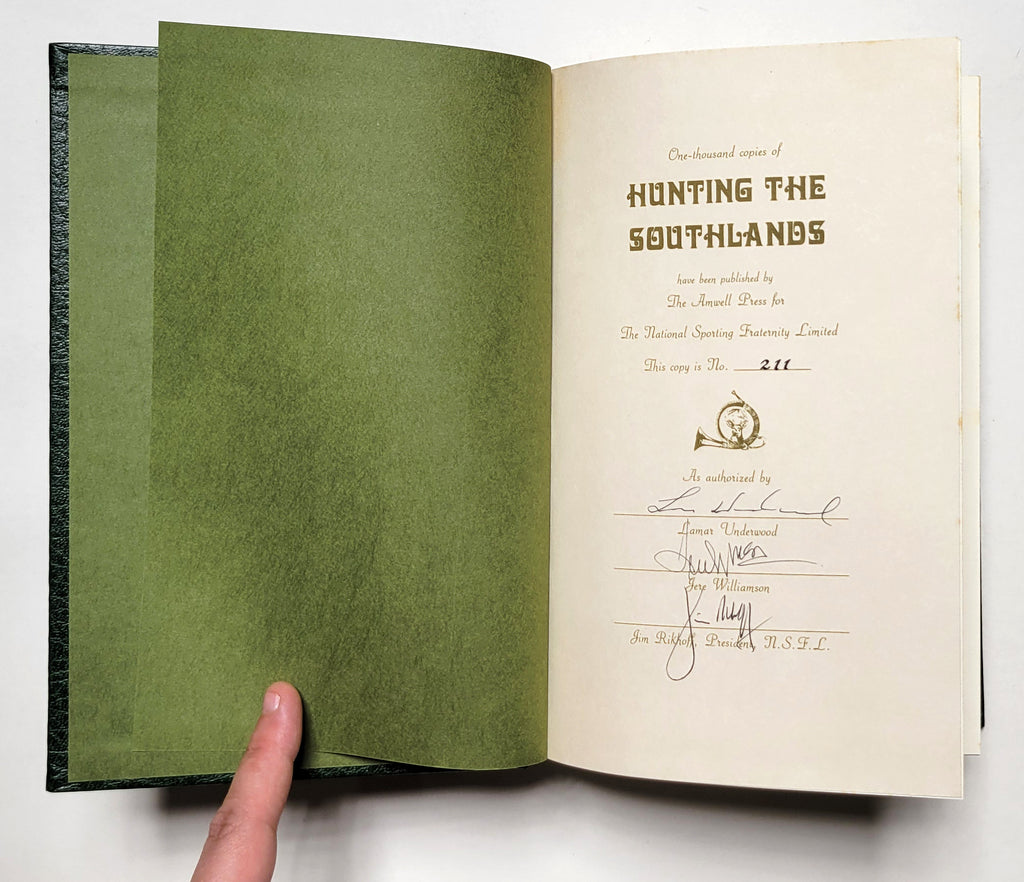 One-thousand copies of
HUNTING THE
SOUTHLANDS
have been published by
The Amwell Press for
The National Sporting Fraternity Limited
This copy is No. 211
As authorized by
Lamar Underwood
Jere Williamson
Jim Rikhoff, President, N.S.F.L.